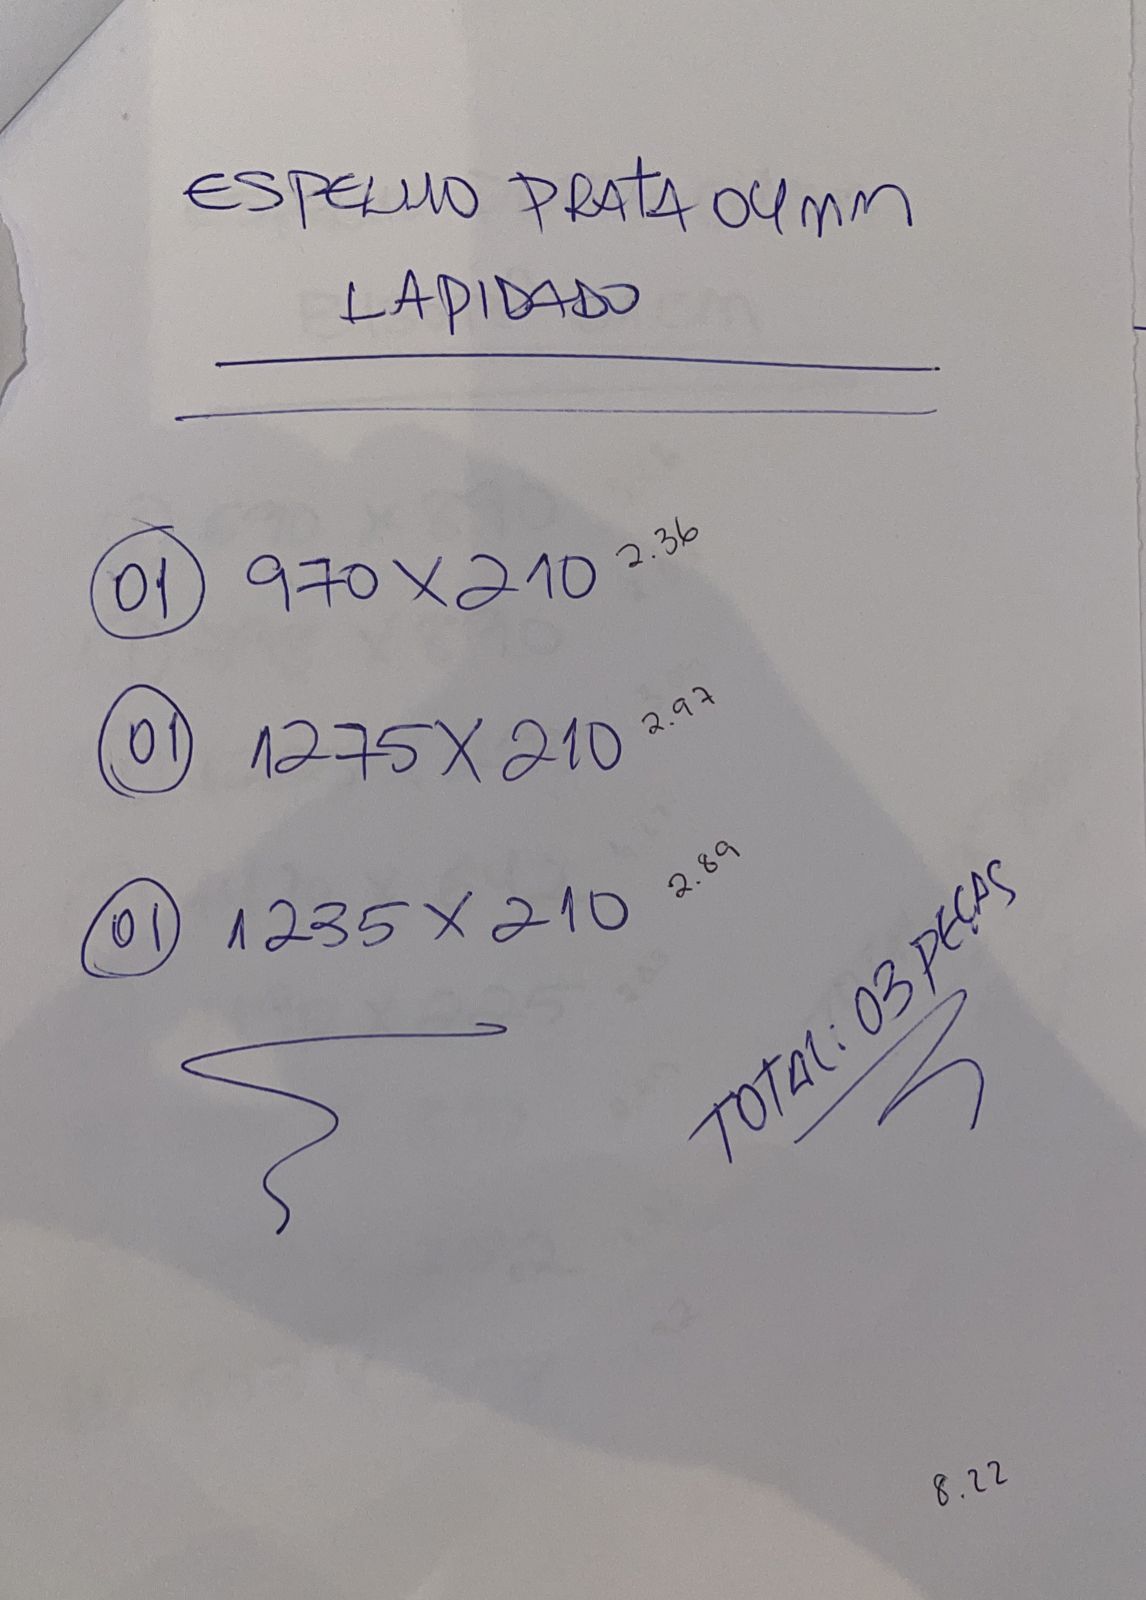 ESPELHO PRATA 04mm
LAPIDADO
01 970 X 210 2.36
01 1275 X 210 2.97
01 1235 X 210 2.89
TOTAL: 03 PEÇAS
8.22